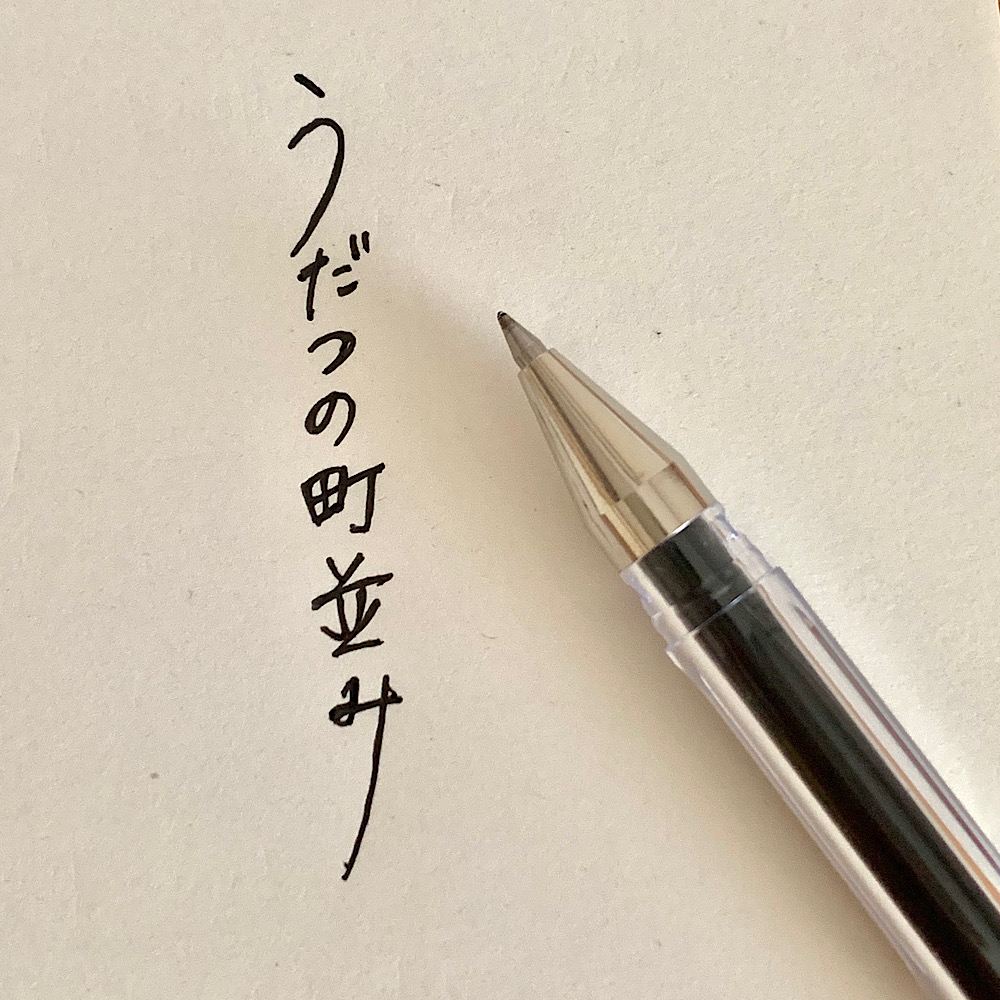 うだつの町並み